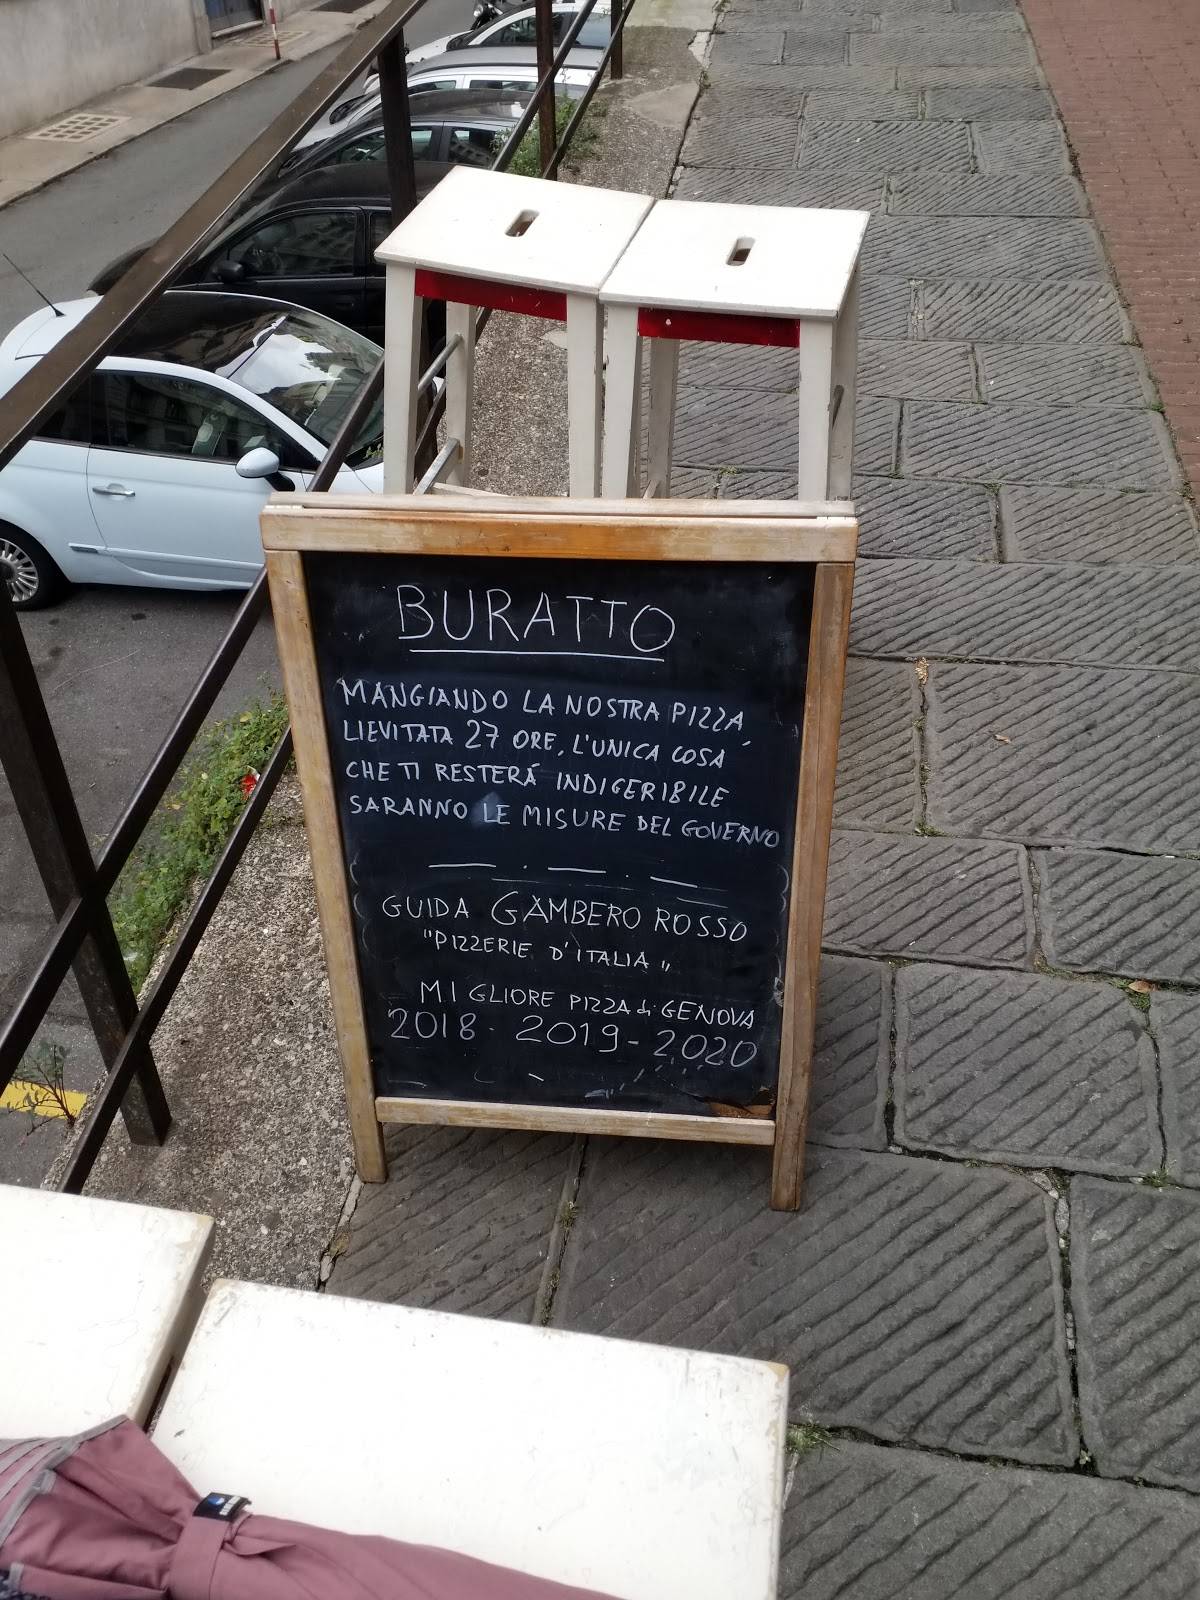 BURATTO
MANGIANDO LA NOSTRA PIZZA,
LIEVITATA 27 ORE, L'UNICA COSA
CHE TI RESTERÁ INDIGERIBILE
SARANNO LE MISURE DEL GOVERNO
GUIDA GAMBERO ROSSO
"PIZZERIE D'ITALIA"
MIGLIORE PIZZA di GENOVA
2018 - 2019 - 2020